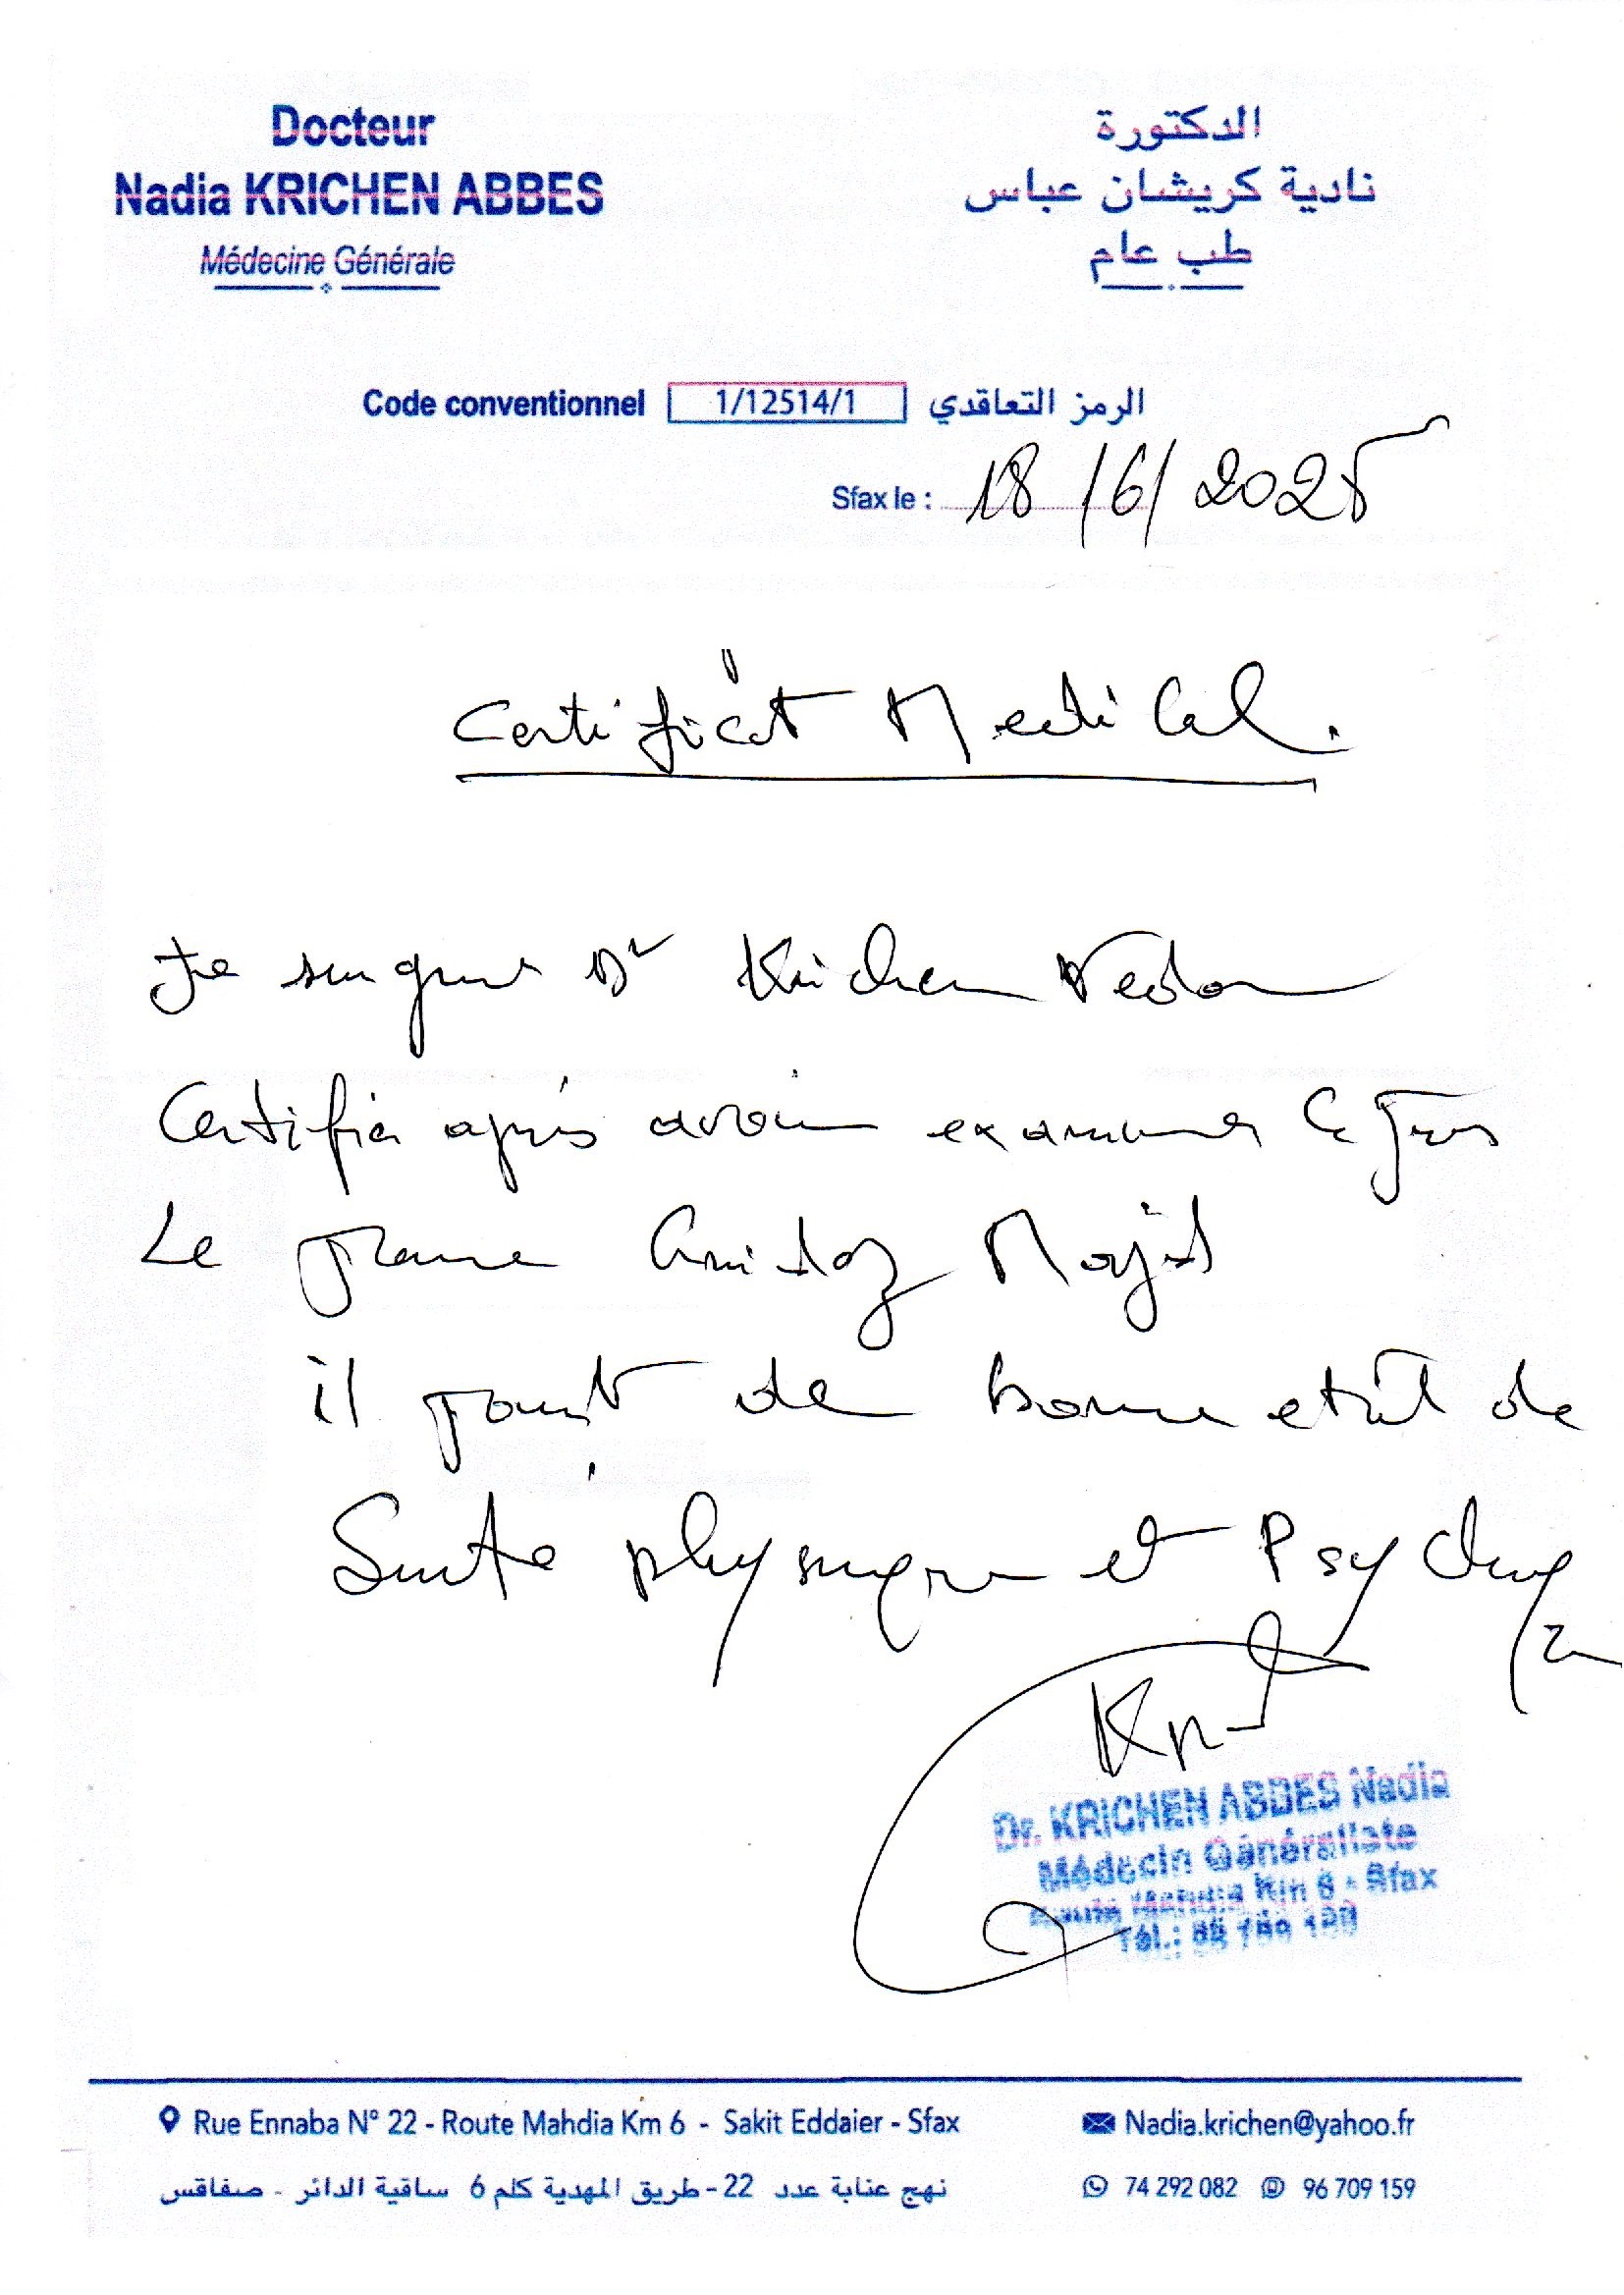 Docteur
Nadia KRICHEN ABBES
Médecine Générale
الدكتورة
نادية كريشان عباس
طب عام
Code conventionnel 1/12514/1 الرمز التعاقدي
Sfax le : 18/6/2025
Certificat Medical.
Je soussigné Dr Krichen Nadia
Certifier après avoir examiner Ce jour
Le jeune Majid
il jouit de bonne etat de
Santé physique et Psychique
Dr. KRICHEN ABBES Nadia
Médecin Généraliste
Route Mahdia Km 6 - Sfax
Tél.:
Rue Ennaba N° 22 - Route Mahdia Km 6 - Sakit Eddaier - Sfax
Nadia.krichen@yahoo.fr
نهج عنابة عدد 22 - طريق المهدية كلم 6 ساقية الدائر - صفاقس
74 292 082 96 709 159